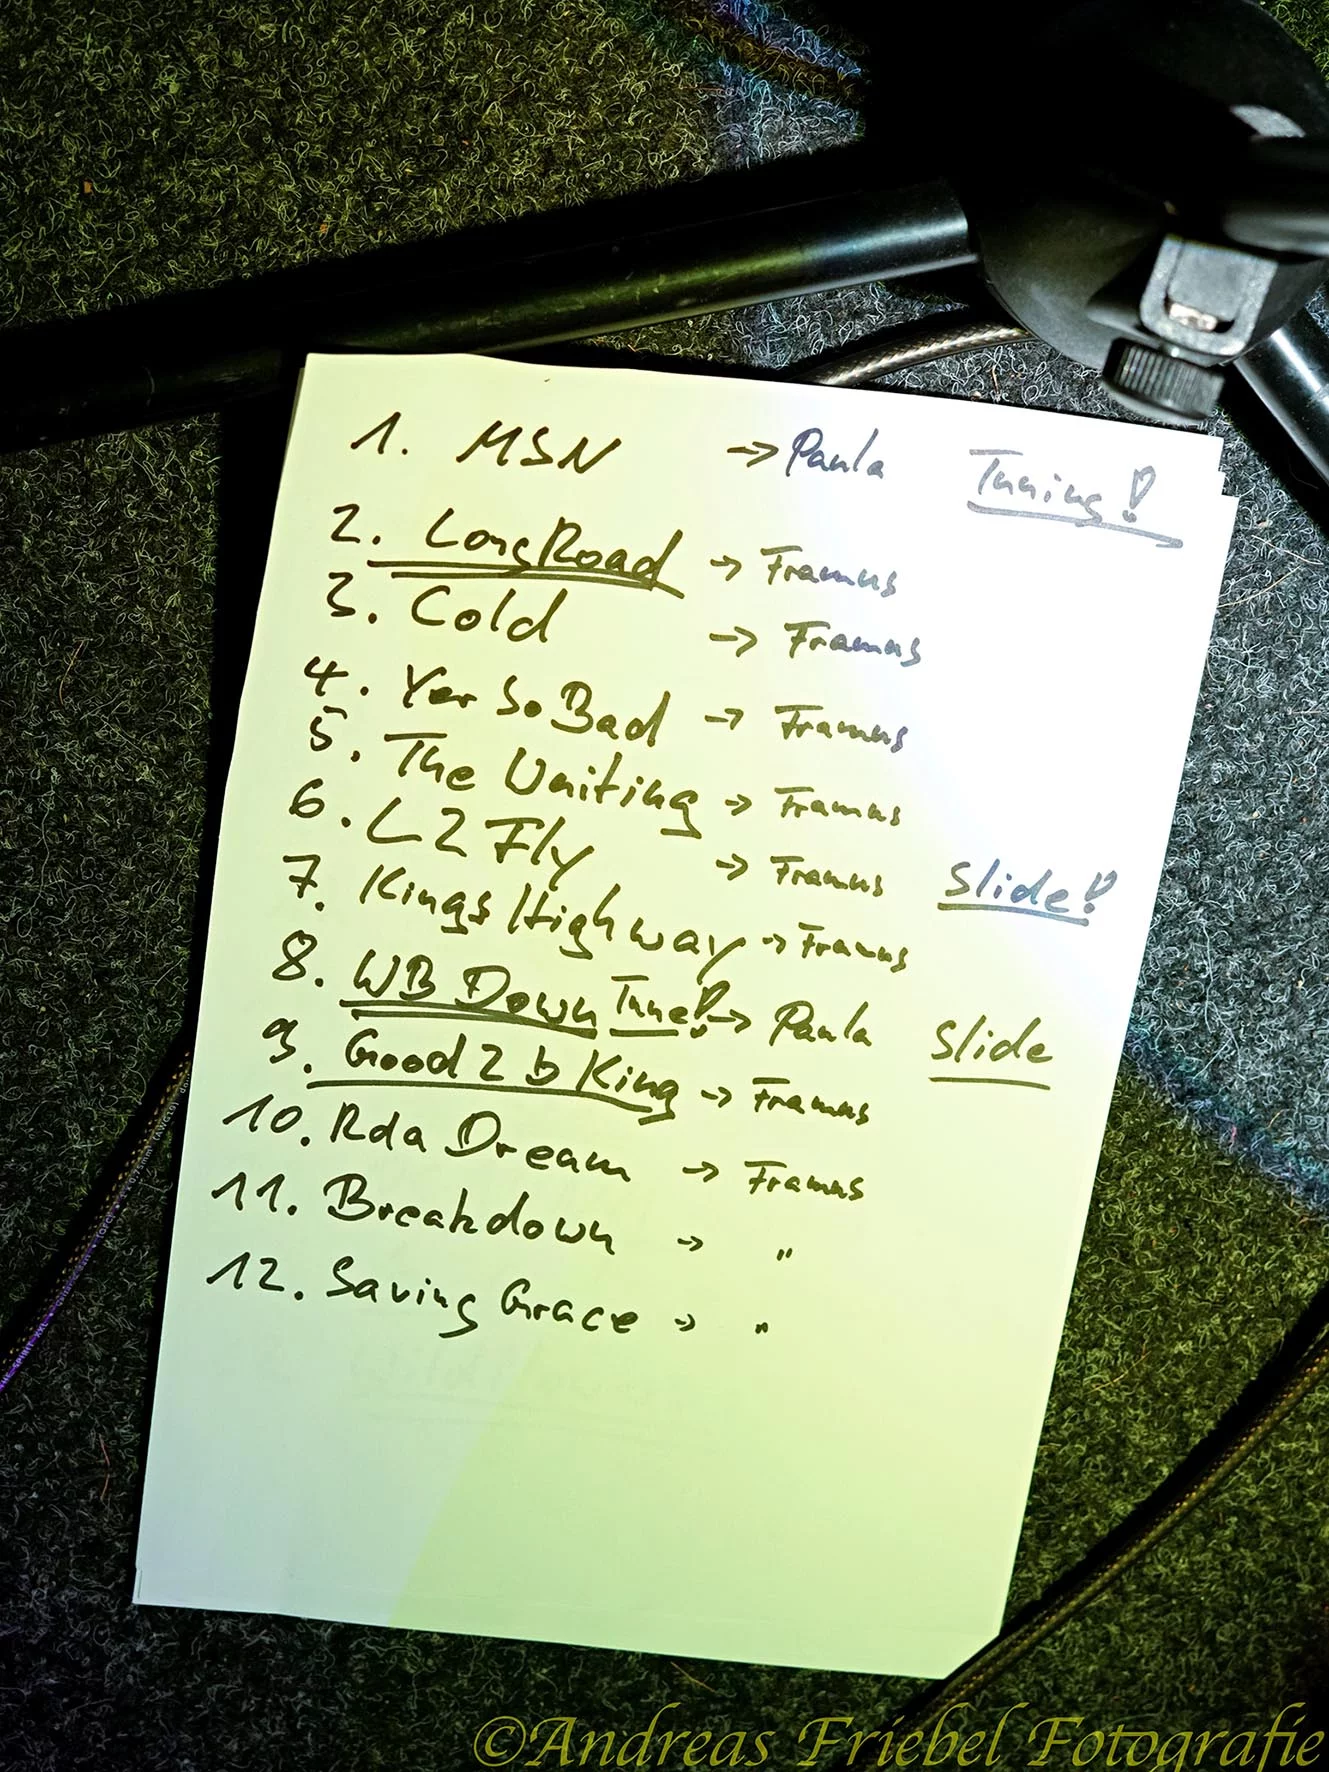 1. MSN → Paula Tuning!
2. LongRoad → Framus
3. Cold → Framus
4. Yer So Bad → Framus
5. The Waiting → Framus
6. L2Fly → Framus Slide!
7. Kings Highway → Framus
8. WB Down Tune! → Paula Slide
9. Good 2 b King → Framus
10. Rda Dream → Framus
11. Breakdown → "
12. Saving Grace → "
©Andreas Friebel Fotografie